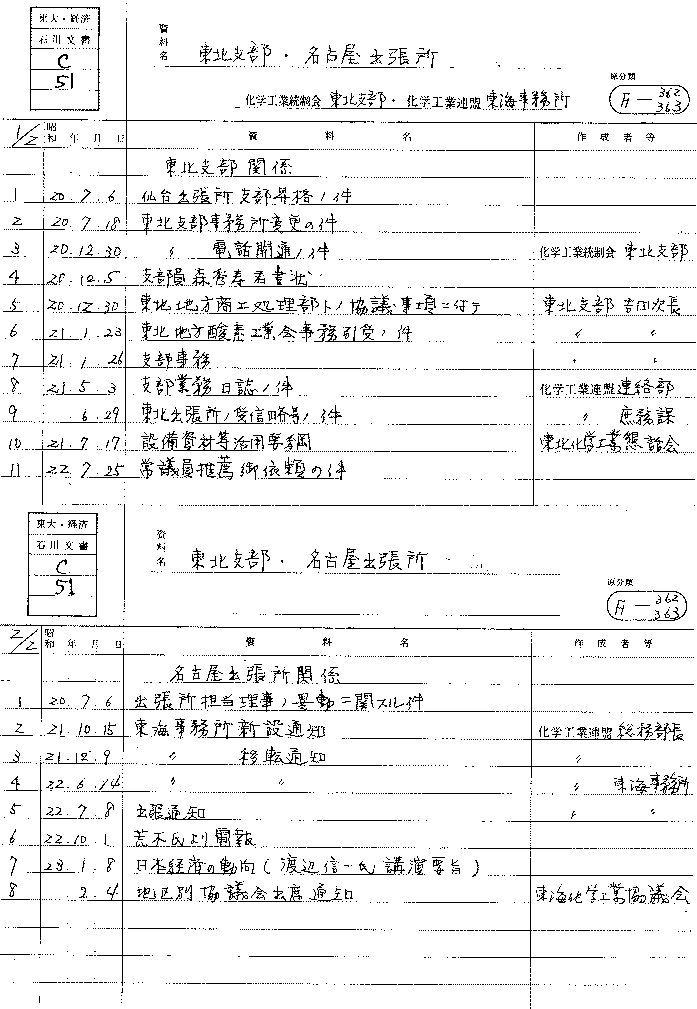 東大・経済
石川文書
C
51
資料名 東北支部・名古屋出張所
化学工業統制会 東北支部・化学工業連盟 東海事務所
原分類
362
363
1/2 昭和 年 月 日 資料名 作成者等
東北支部関係
1 20.7.6 仙台出張所支部昇格ノ件
2 20.7.18 東北支部事務所変更の件
3 20.12.30 〃 電話開通ノ件 化学工業統制会 東北支部
4 20.12.5 支部員森秀寿君書状
5 20.12.30 東北地方商工処理部トノ協議事項ニ付テ 東北支部 吉田次長
6 21.1.23 東北地方酸素工業会事務引受ノ件 〃 〃
7 21.1.26 支部事務 〃 〃
8 21.5.3 支部業務日誌ノ件 化学工業連盟 連絡部
9 6.29 東北出張所ノ受信略号ノ件 〃 庶務課
10 21.7.17 設備資材等活用要綱 東北化学工業懇話会
11 22.7.25 常議員推薦御依頼の件
東大・経済
石川文書
C
51
資料名 東北支部・名古屋出張所
原分類
362
363
2/2 昭和 年 月 日 資料名 作成者等
名古屋出張所関係
1 20.7.6 出張所担当理事ノ異動ニ関スル件
2 21.10.15 東海事務所新設通知 化学工業連盟 総務部長
3 21.12.9 〃 移転通知 〃
4 22.6.14 〃 〃 〃 東海事務所
5 22.7.8 出張通知 〃 〃
6 22.10.1 荒木氏より電報
7 23.1.8 日本経済の動向(渡辺信一氏講演要旨)
8 2.4 地区別協議会出席通知 東海化学工業協議会